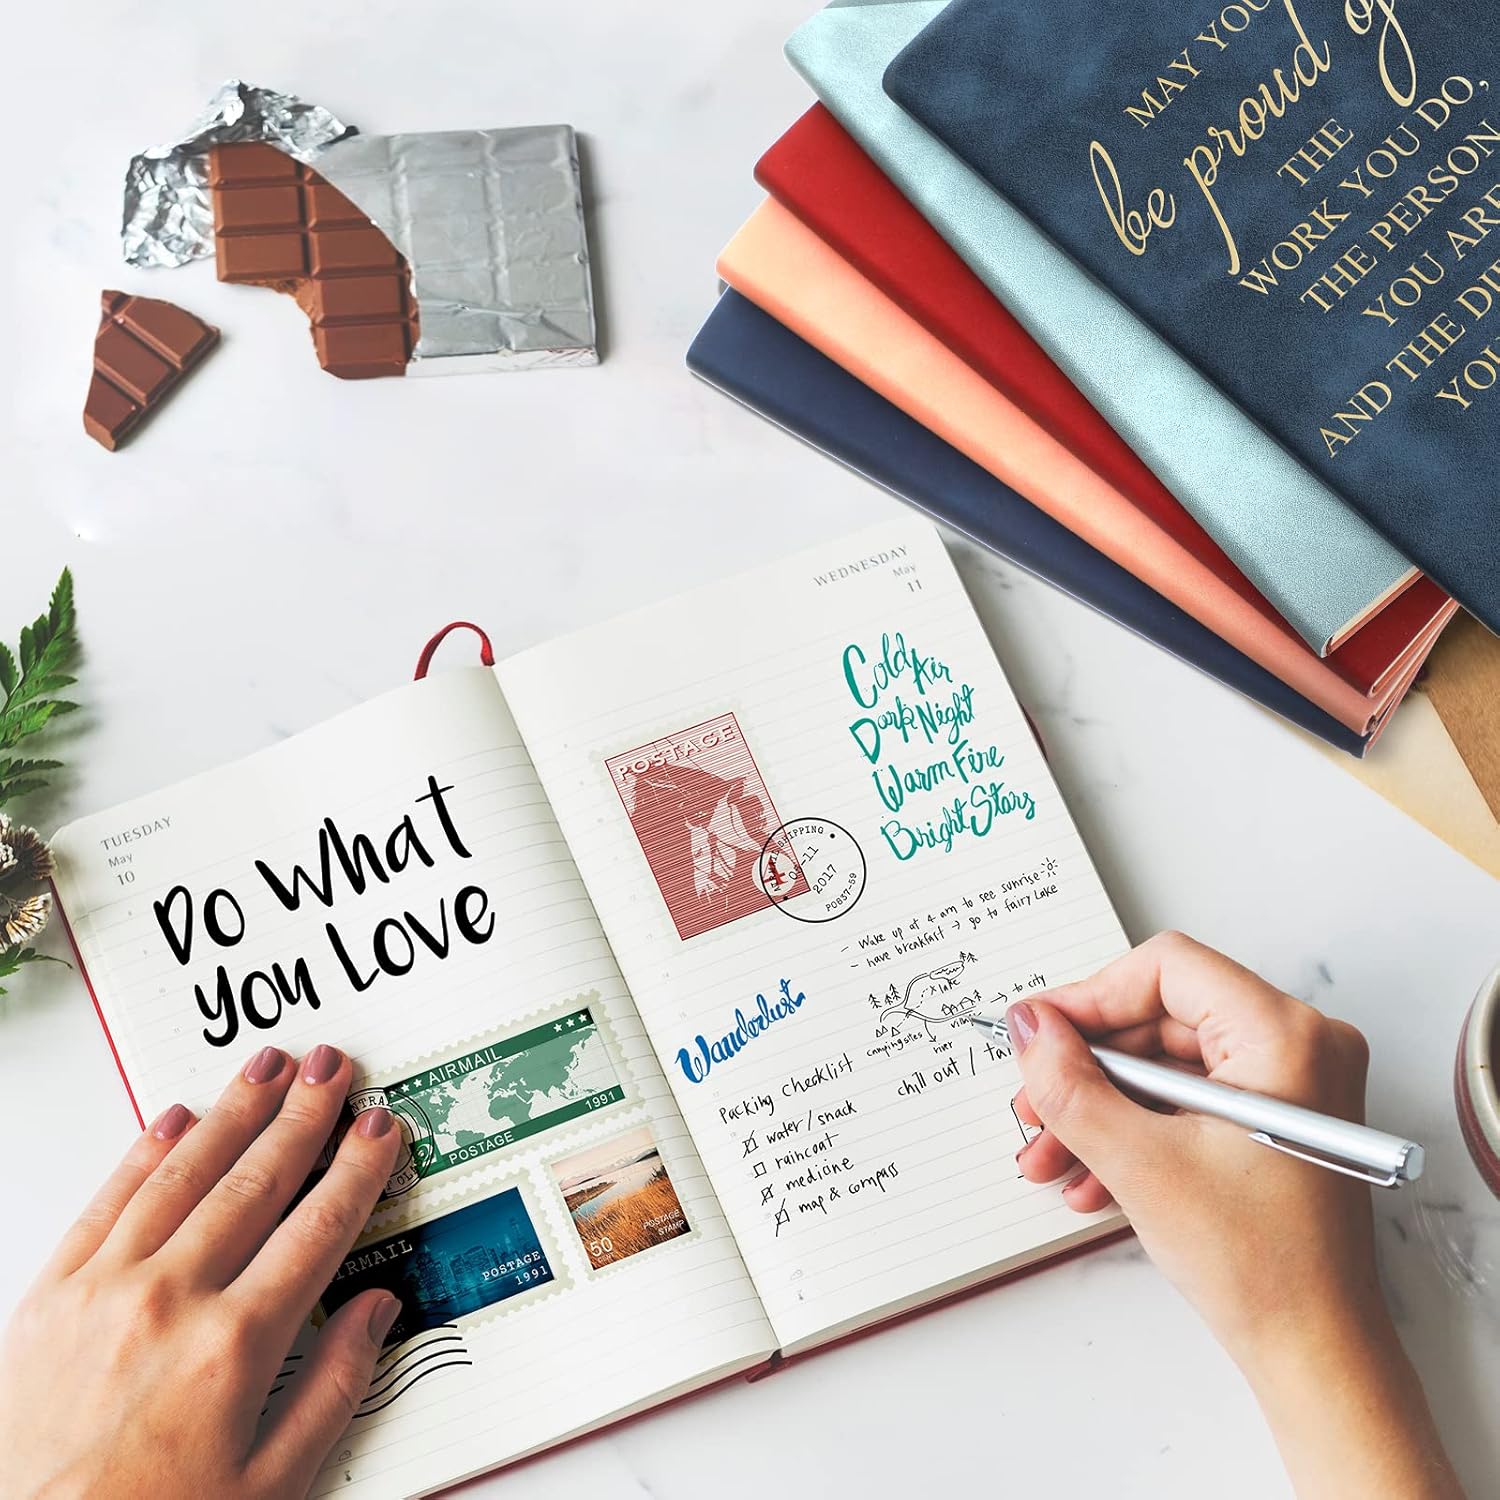 MAY YOU
be proud of
THE
WORK YOU DO,
THE PERSON
YOU ARE
AND THE
TUESDAY
May
10
Do What
you Love
AIRMAIL
POSTAGE
1991
POSTAGE
1991
50
POSTAGE
STAMP
WEDNESDAY
May
11
Cold Air
Dark Night
Warm Fire
Bright Stars
POSTAGE
4
SHIPPING
2017
- Wake up at 4 am to see sunrise
- have breakfast → go to fairy Lake
lake
→ to city
camping sites
river
chill out /
Wanderlust
Packing checklist
water/snack
raincoat
medicine
map & compass